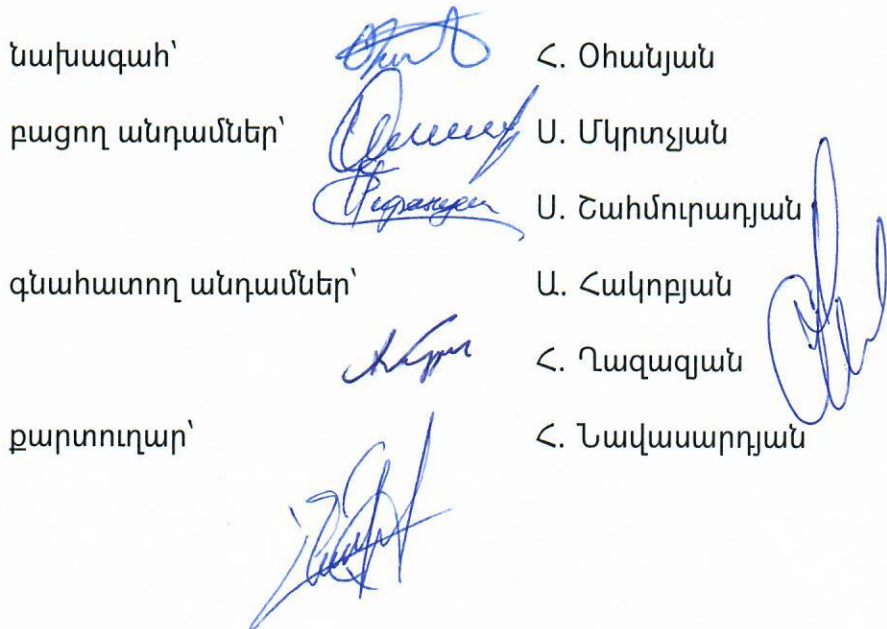 նախագահ՝ Հ. Օհանյան
բացող անդամներ՝ Ս. Մկրտչյան
Ս. Շահմուրադյան
գնահատող անդամներ՝ Ա. Հակոբյան
Հ. Ղազազյան
քարտուղար՝ Հ. Նավասարդյան